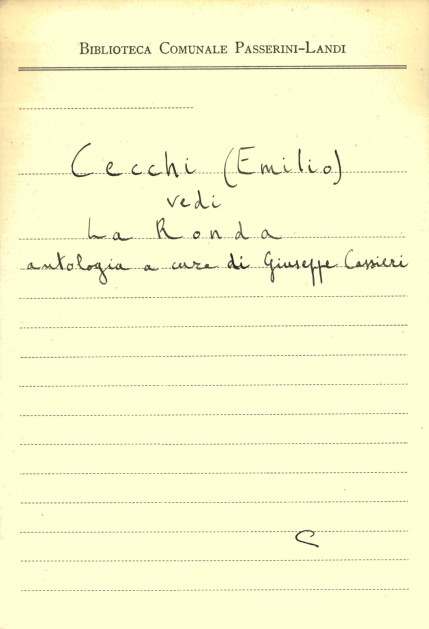 Biblioteca Comunale Passerini-Landi
Cecchi (Emilio)
vedi
La Ronda
antologia a cura di Giuseppe Cassieri
C